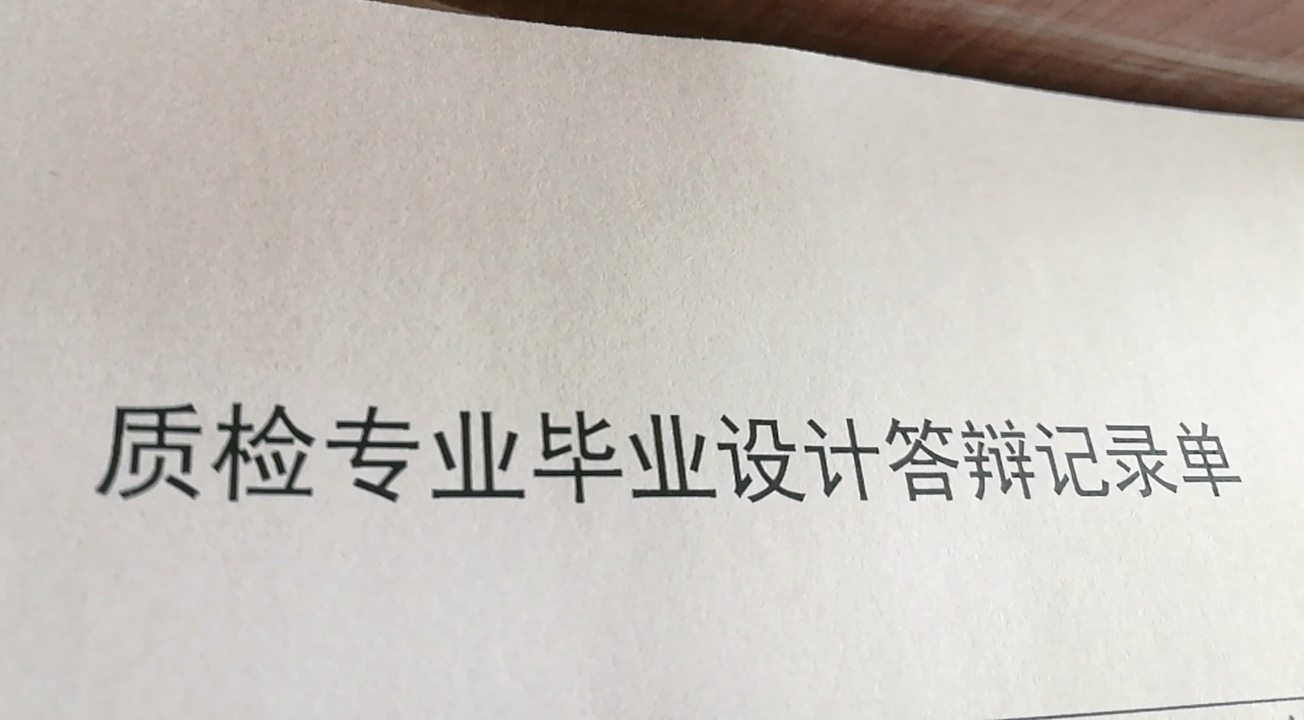 质检专业毕业设计答辩记录单